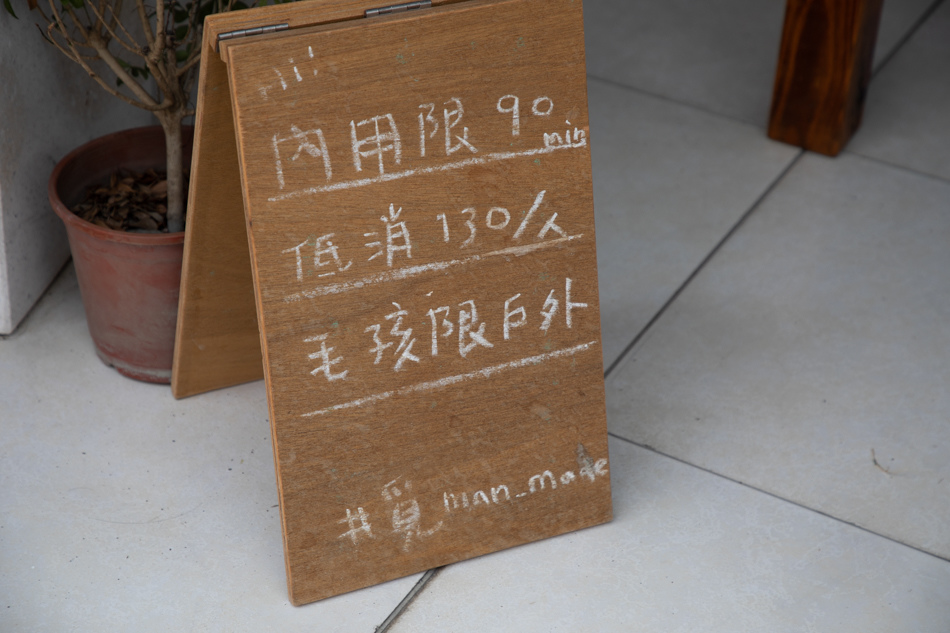 內用限 90 min
低消 130/人
毛孩限戶外
#覓 man_made